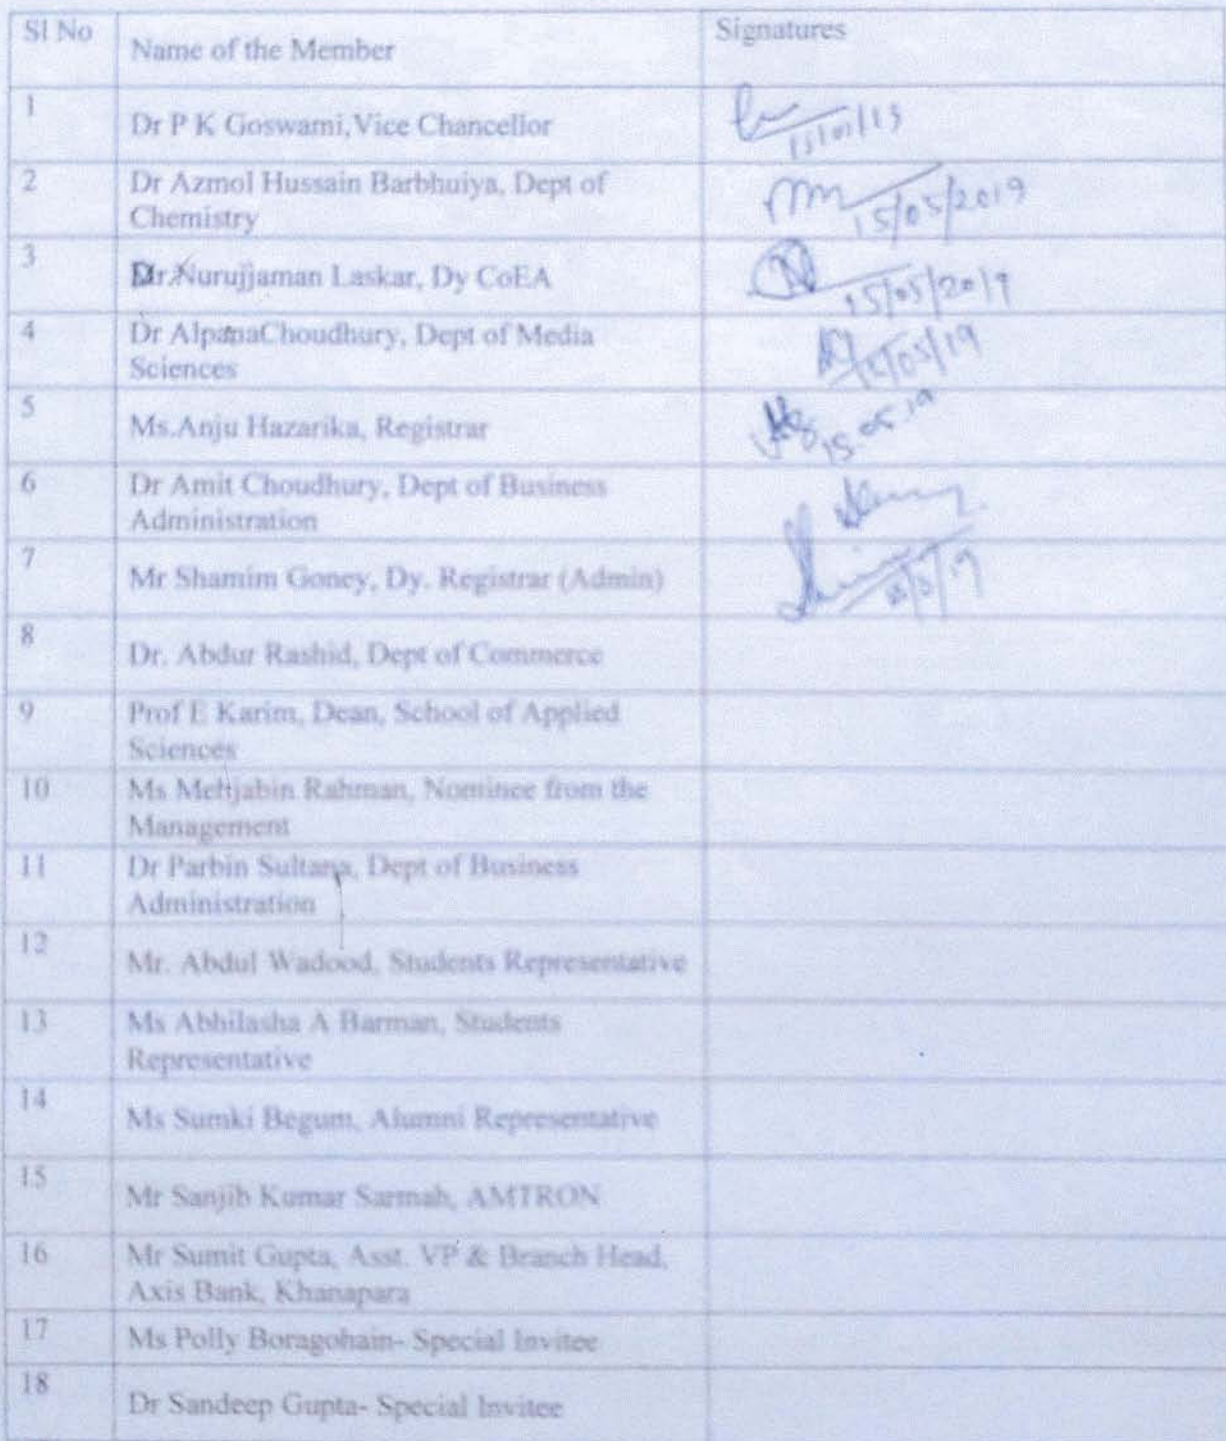 Sl No
Name of the Member
Signatures
1
Dr P K Goswami,Vice Chancellor
2
Dr Azmol Hussain Barbhuiya, Dept of
Chemistry
15/05/2019
3
Dr.Nurujjaman Laskar, Dy CoEA
15/05/2019
4
Dr AlpanaChoudhury, Dept of Media
Sciences
5
Ms.Anju Hazarika, Registrar
15.05.19
6
Dr Amit Choudhury, Dept of Business
Administration
7
Mr Shamim Goney, Dy. Registrar (Admin)
8
Dr. Abdur Rashid, Dept of Commerce
9
Prof E Karim, Dean, School of Applied
Sciences
10
Ms Mehjabin Rahman, Nominee from the
Management
11
Dr Parbin Sultana, Dept of Business
Administration
12
Mr. Abdul Wadood, Students Representative
13
Ms Abhilasha A Barman, Students
Representative
14
Ms Sumki Begum, Alumni Representative
15
Mr Sanjib Kumar Sarmah, AMTRON
16
Mr Sumit Gupta, Asst. VP & Branch Head,
Axis Bank, Khanapara
17
Ms Polly Boragohain- Special Invitee
18
Dr Sandeep Gupta- Special Invitee